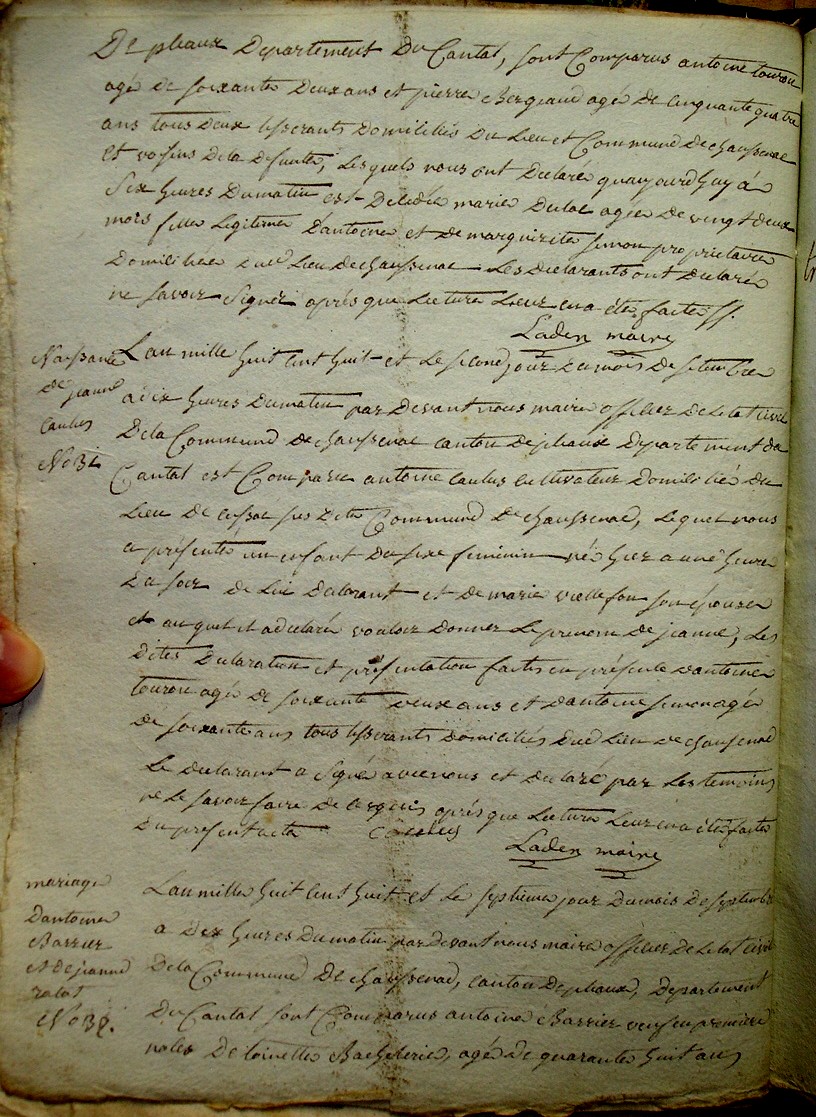 De pleaux Departement Du Cantal, sont Comparus antoine touron
agé de soixante Deux ans et pierre Bergeaud agé de cinquante quatre
ans tous deux tisserants Domiciliés Du Lieu et Commune De chaussenac
et voisins de la defunte, Lesquels nous ont Declaré quaujourdhuy à
Six heures Du matin est Decedée marie Duclac agée De vingt deux
mois fille Legitime d'antoine et de marguerite simon proprietaire
Domiciliée Lieu De chaussenac Les Declarants ont Declaré
ne savoir Signer après que Lecture Leur en a été faite
Laden maire
Naissance
de jeanne
Caulus
No 31
Lan mille huit cent huit et Le second jour du mois De septembre
à dix heures Du matin par Devant nous maire officier De Letat civil
De la Commune De chaussenac canton De pleaux Departement du
Cantal est Comparu antoine Caulus cultivateur Domicilié du
Lieu De Commune De chaussenac, Lequel nous
a présenté un enfant Du sexe feminin né hier a une heure
du soir de Lui Declarant et de marie viellefon son épouse
et auquel il a declaré vouloir Donner Le prenom De jeanne, Les
Dites Declaration et présentation faites en présence d'antoine
touron agé De soixante deux ans et d'antoine simon agé
de soixante ans tous tisserants Domiciliés Lieu De chaussenac
Le Declarant a Signé avec nous et declaré par Les temoins
ne Le savoir faire De ce requis après que Lecture Leur en a été faite
Du present acte
Laden maire
mariage
D'antoine
Barrier
et de jeanne
ratat
No 32.
Lan mille huit cent huit et Le septieme jour Du mois De septembre
à Dix heures Du matin par devant nous maire officier De Letat civil
De la Commune De chaussenac, canton De pleaux, Departement
Du Cantal sont Comparus antoine Barrier veuf en premiere
noces De toinette Bachelerie, agé de quarante huit ans